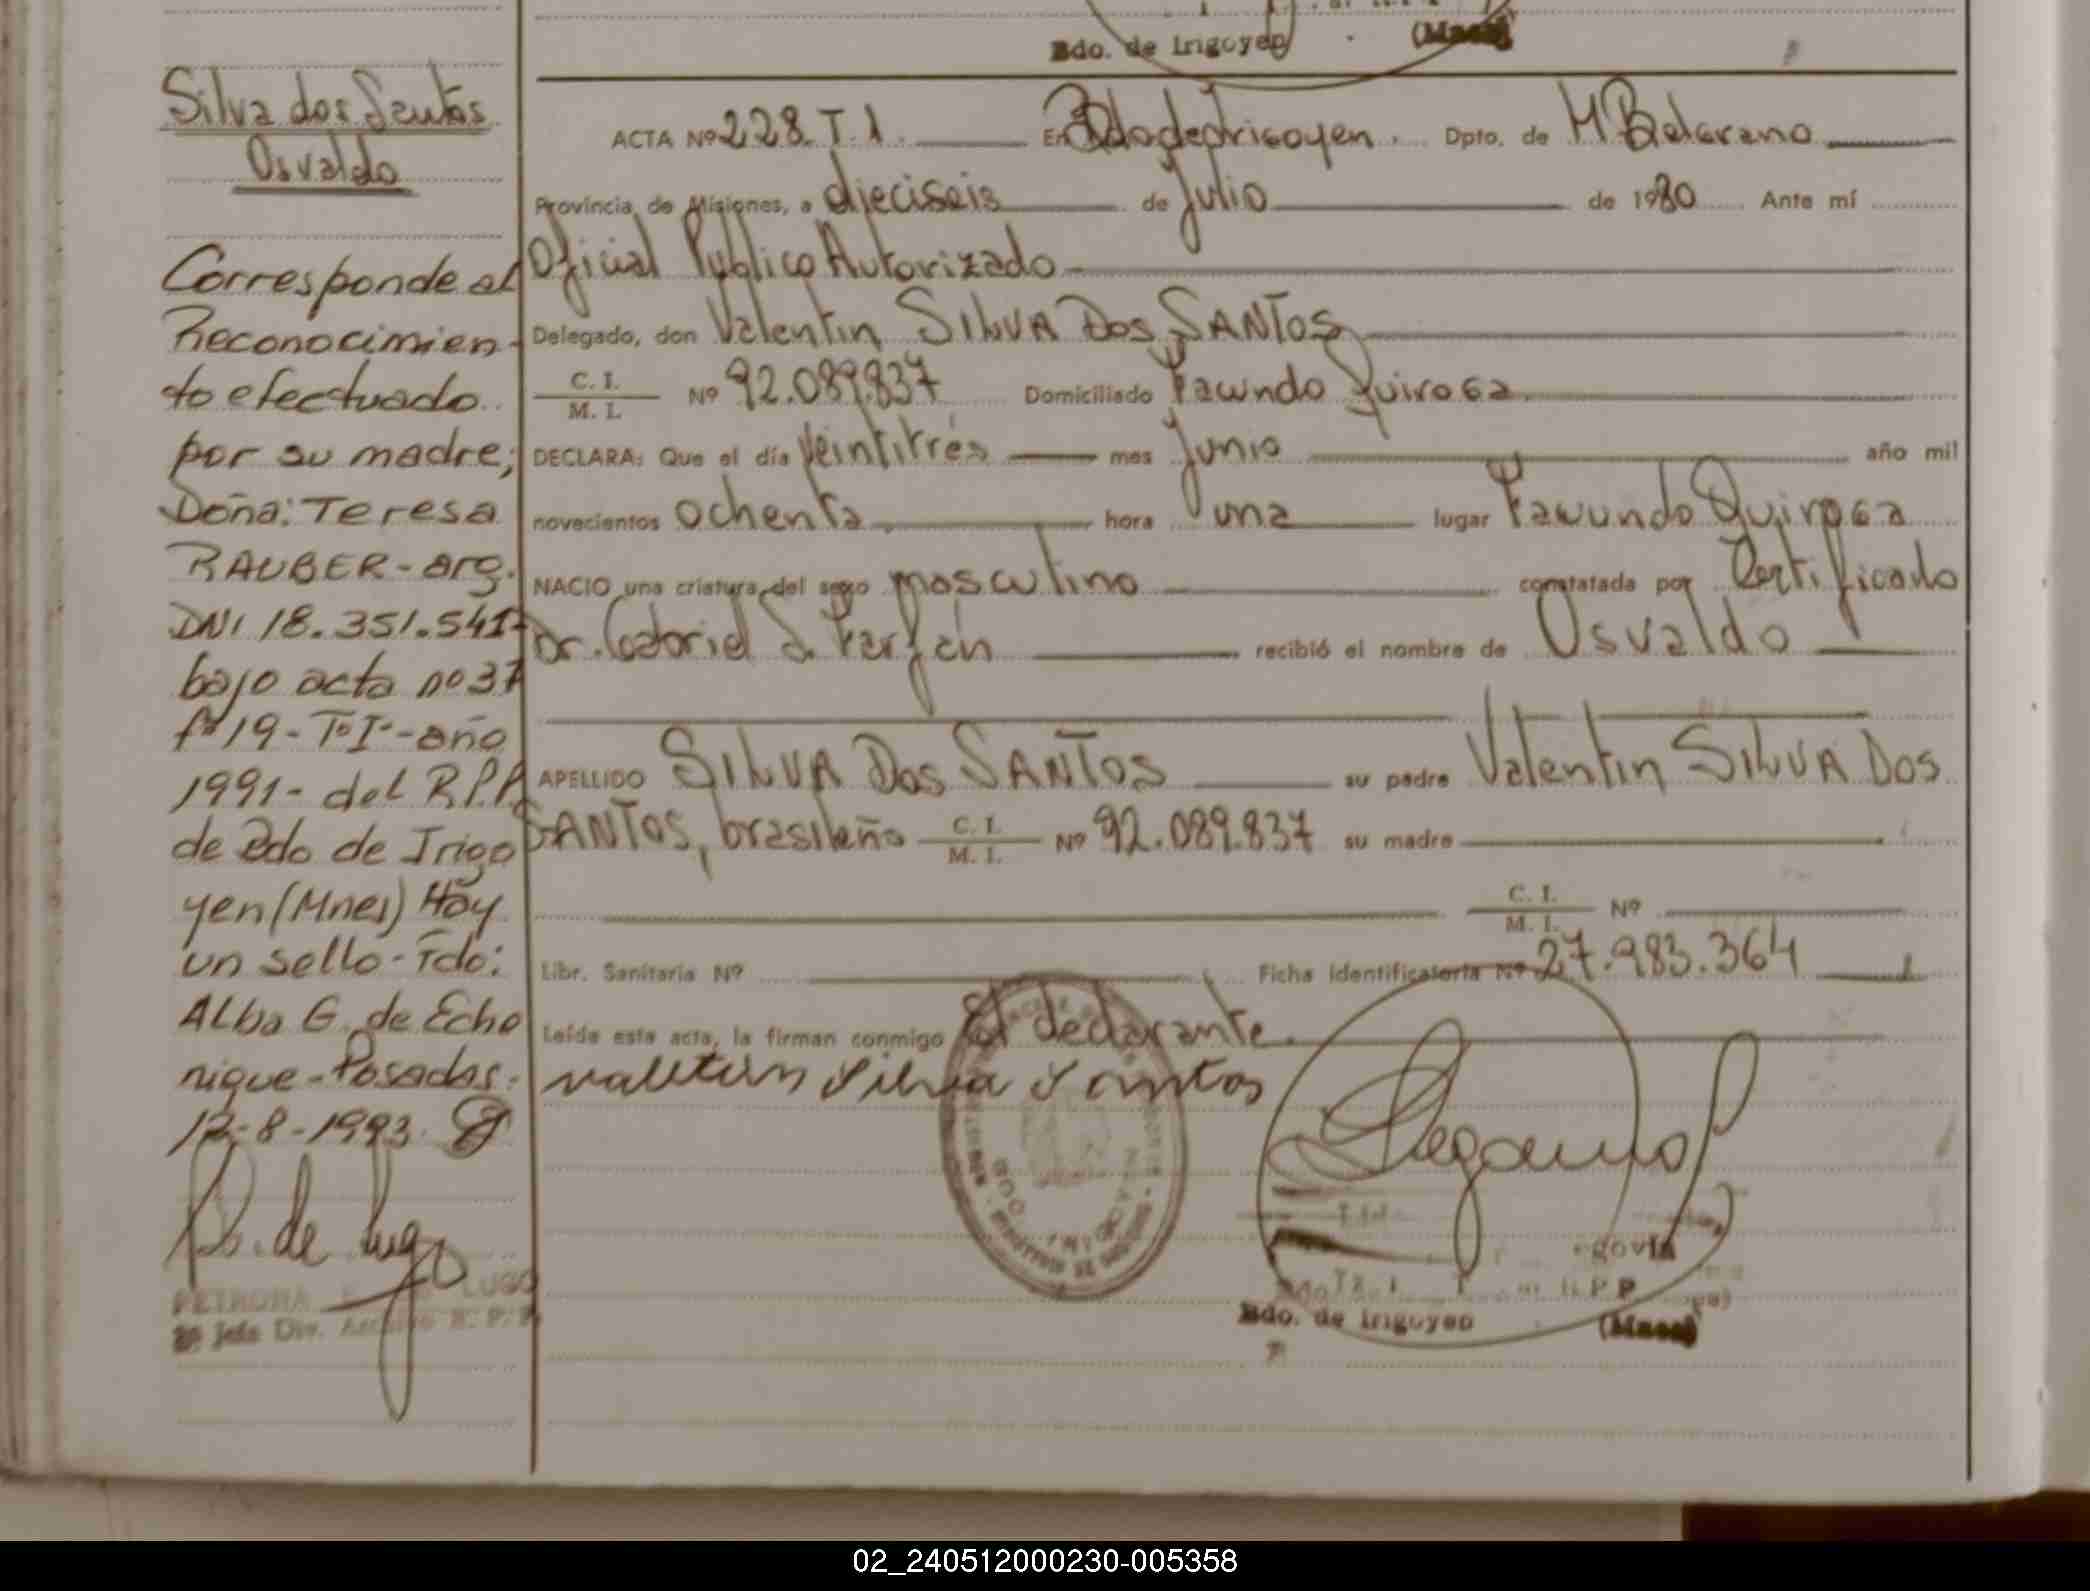 Bdo. de Irigoyen (Mnes)
Silva dos Santos
Osvaldo
Corresponde al
Reconocimien-
to efectuado
por su madre,
Doña: Teresa
RAUBER - arg.
DNI 18.351.541-
bajo acta nº 37
fº 19 - Tº Iº - año
1991 - del R.P.P.
de Bdo de Irigo
yen (Mnes) Hay
un sello - Fdo:
Alba G. de Echo
nique - Posadas -
12-8-1993.
P. de Lugo
PETRONA LUGO
2º Jefe Div. Archivo R. P. P.
ACTA Nº 228. T. 1. En Bdo de Irigoyen. Dpto. de M Belgrano
Provincia de Misiones, a dieciseis de Julio de 1980 Ante mí
Oficial Publico Autorizado
Delegado, don Valentin SILVA Dos SANTOS
C. I. / M. I. Nº 92.089.837 Domiciliado Facundo Quiroga
DECLARA: Que el día Veintitrés mes Junio año mil
novecientos ochenta hora una lugar Facundo Quiroga
NACIO una criatura del sexo masculino constatada por Certificado
Dr. Gabriel S. Farfán recibió el nombre de Osvaldo
APELLIDO SILVA Dos SANTOS su padre Valentin SILVA Dos
SANTOS, brasileño C. I. / M. I. Nº 92.089.837 su madre
C. I. / M. I. Nº
Libr. Sanitaria Nº Ficha Identificatoria Nº 27.983.364
Leída esta acta, la firman conmigo El declarante.
valetin Silva Santos
R.P.P
Bdo. de Irigoyen (Mnes)
02_240512000230-005358